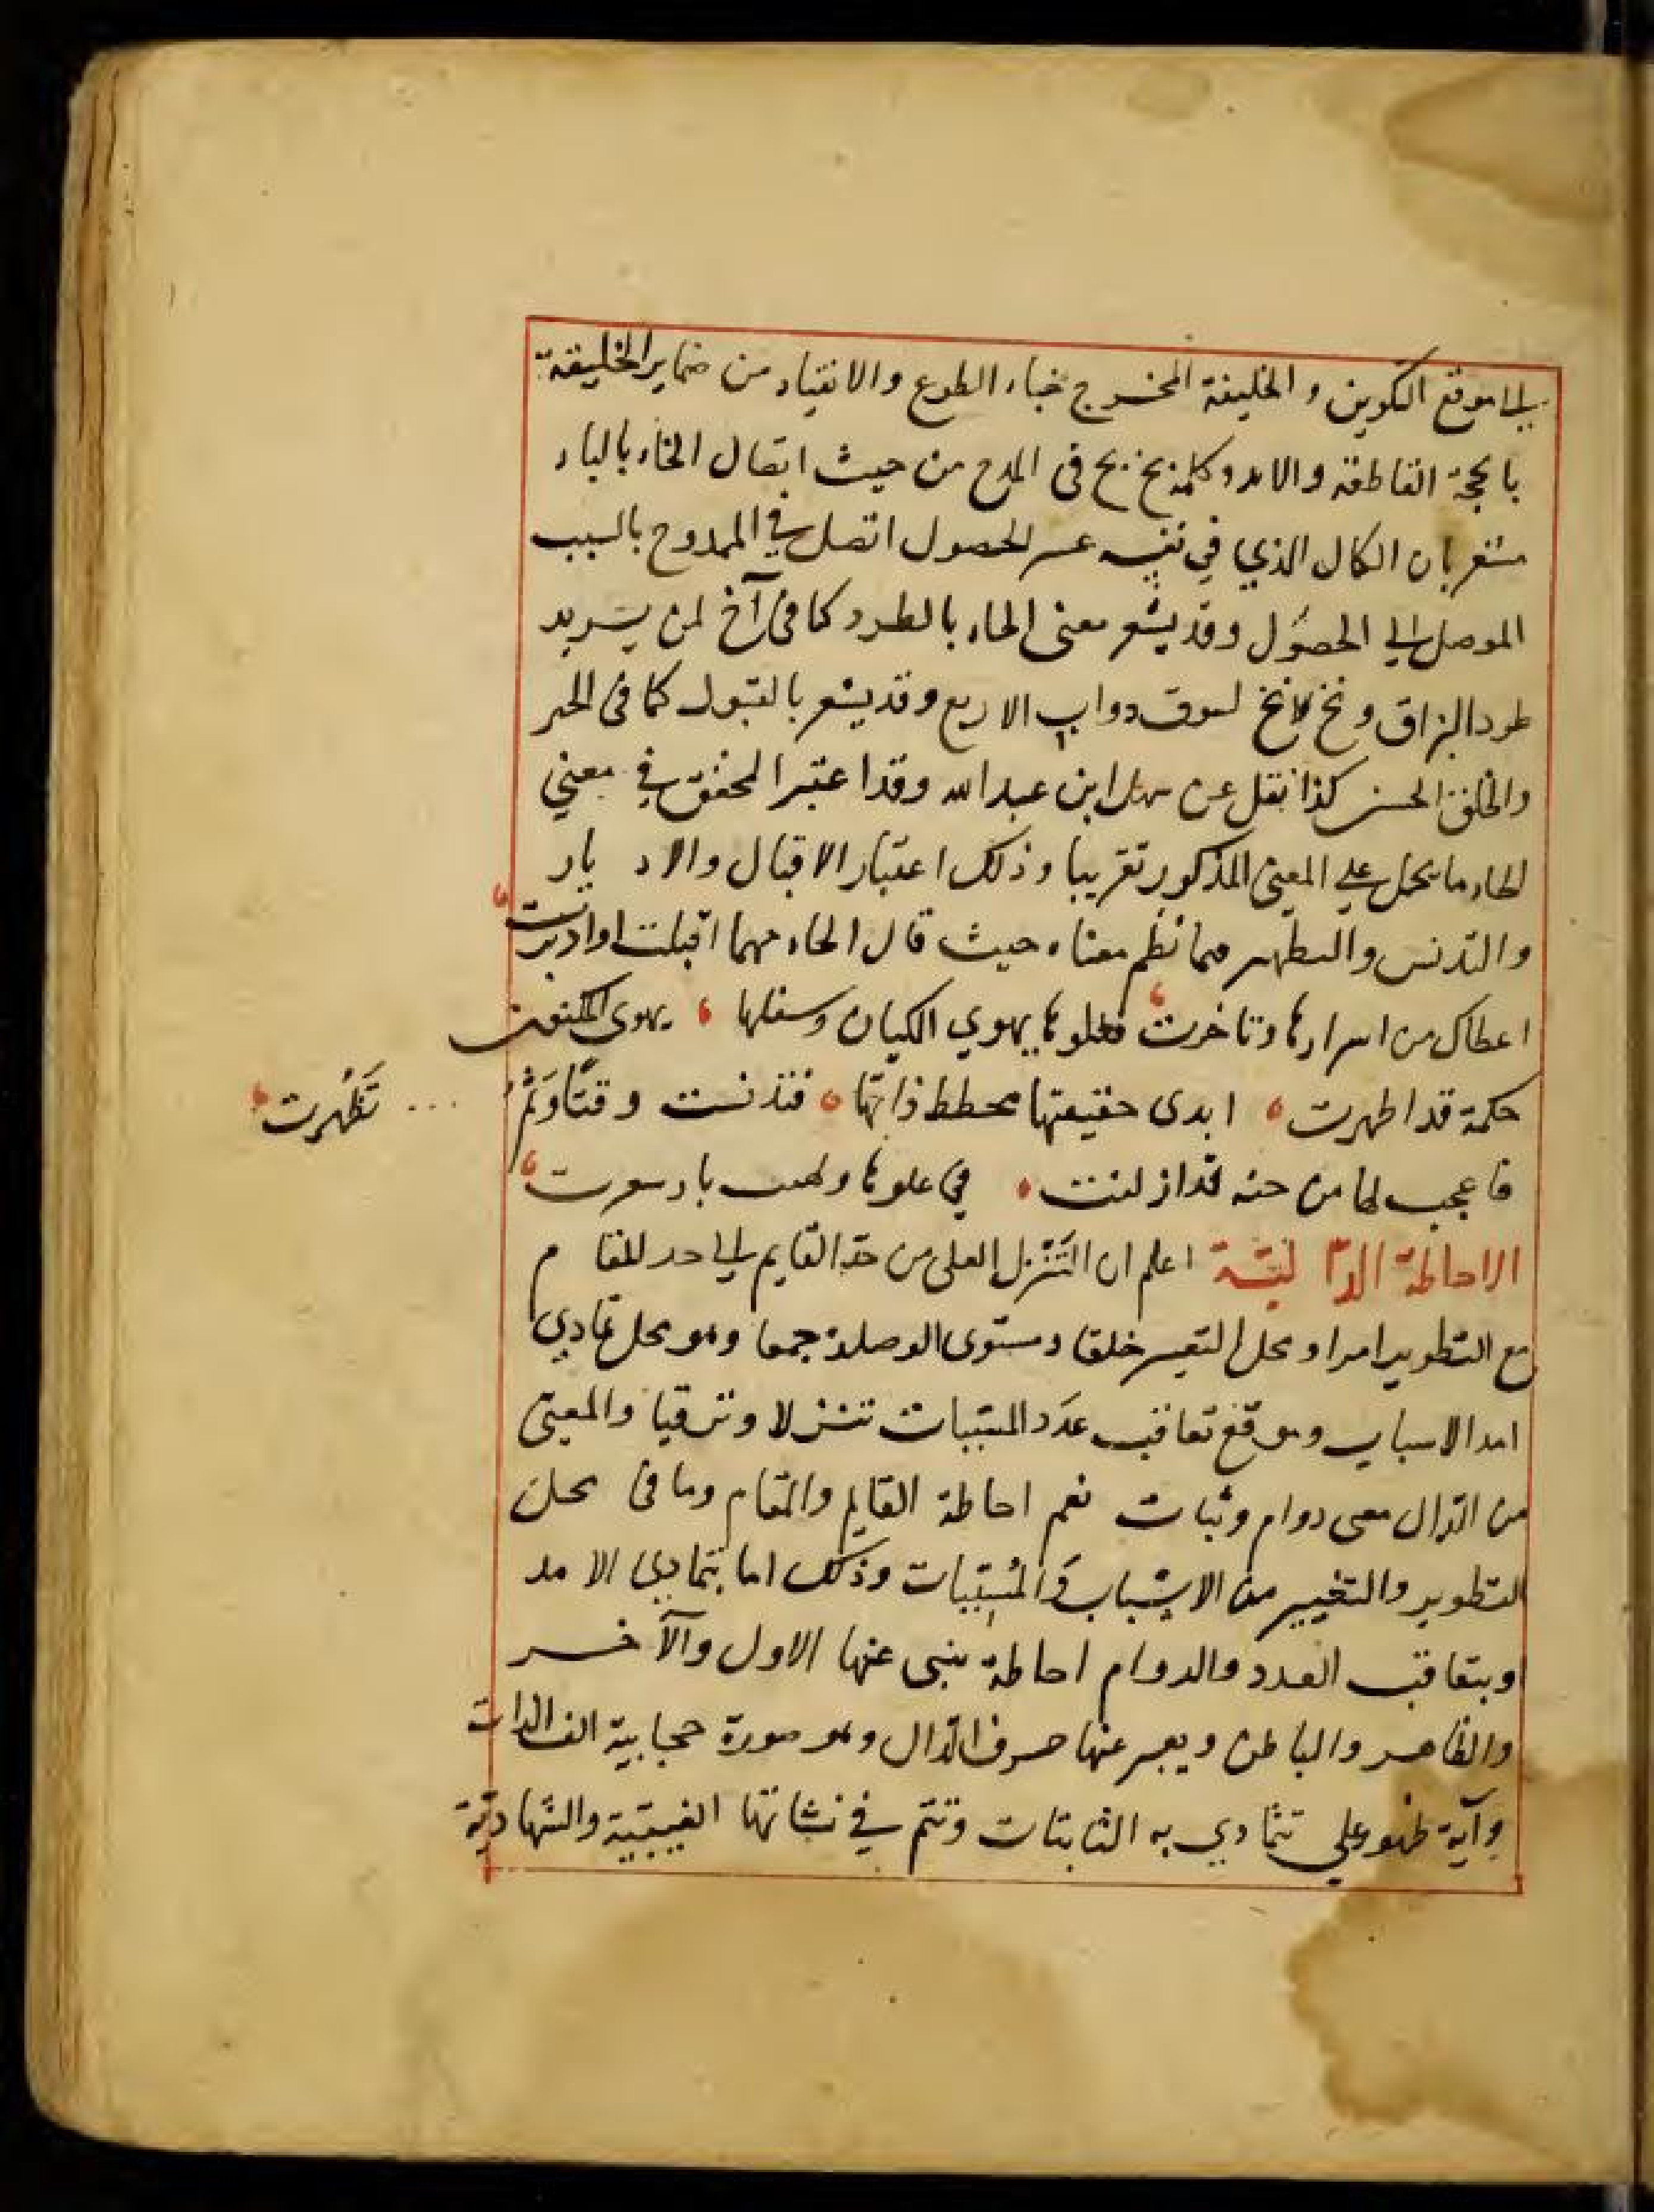 الى موقع التكوين والخليفة المخرج خباء الطوع والانقياد من ضماير الخليقة
بالحجة القاطعة والامد وكلمة بخ بخ في المدح من حيث اتصال الخاء بالباء
مشعر بان الكمال الذي في نفسه عسر الحصول اتصل في الممدوح بالسبب
الموصل الي الحصول وقد يشعر معنى الخاء بالطرد كما في آخ لمن يريد
طرد البزاق ونخ نخ لسوق دواب الاربع وقد يشعر بالقبول كما في الخير
والخلق الحسن كذا نقل عن سهل ابن عبد الله وقد اعتبر المحقق في معني
الخاء ما يحمل علي المعنى المذكور تقريبا وذلك اعتبار الاقبال والاد بار
والتدنس والتطهر مما نظم معناه حيث قال الخاء مهما اقبلت او ادبرت
اعطاك من اسرارها وتاخرت فعلوها يهوي الكيان وسفلها يهوى المكنون
حكمة قد اظهرت ابدى حقيقتها مخطط ذاتها فتدنست وقتا وثم ... تطهرت
فاعجب لها من جنة قد ازلفت في علوها ولهيب نار سعرت
الاحاطة الدالية اعلم ان التنزل العلي من حد القايم الي احد المقام
مع التطوير امرا ومحل التغيير خلقا ومستوى الوصلة جمعا وهو محل تمادي
امد الاسباب وموقع تعاقب عدد المسببات تنزلا وترقيا والمعنى
من الدال معنى دوام وثبات نعم احاطة القايم والمقام وما في محل
التطوير والتغيير من الاسباب والمسببات وذلك اما بتمادي الامد
او بتعاقب العدد والدوام احاطة ينبى عنها الاول والآخر
والظاهر والباطن ويعبر عنها حرف الدال وهو صورة حجابية الف الذات
وآية ظهور علي تتمادي به الثابتات وتتم في نشاتها الغيبية والشهادية